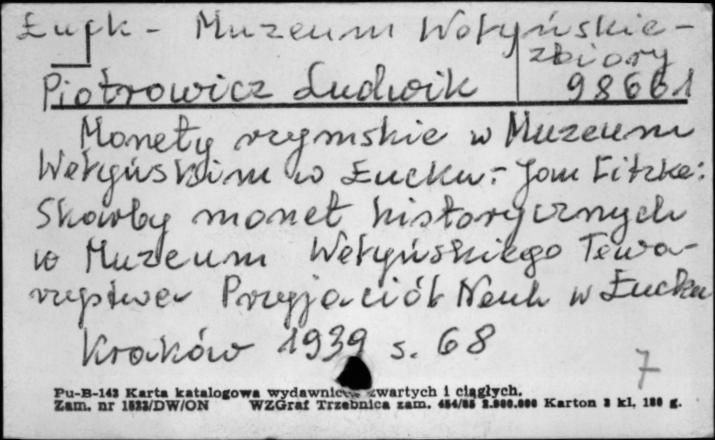 Łuck - Muzeum Wołyńskie -
zbiory
Piotrowicz Ludwik 98661
Monety rzymskie w Muzeum
Wołyńskim w Łucku.- Jan Fitzke:
Skarby monet historycznych
w Muzeum Wołyńskiego Towa-
rzystwa Przyjaciół Nauk w Łucku
Kraków 1939 s. 68
7
Pu-B-143 Karta katalogowa wydawnictw zwartych i ciągłych.
Zam. nr 1523/DW/ON WZGraf Trzebnica zam. 454/85 2.000.000 Karton 3 kl. 180 g.